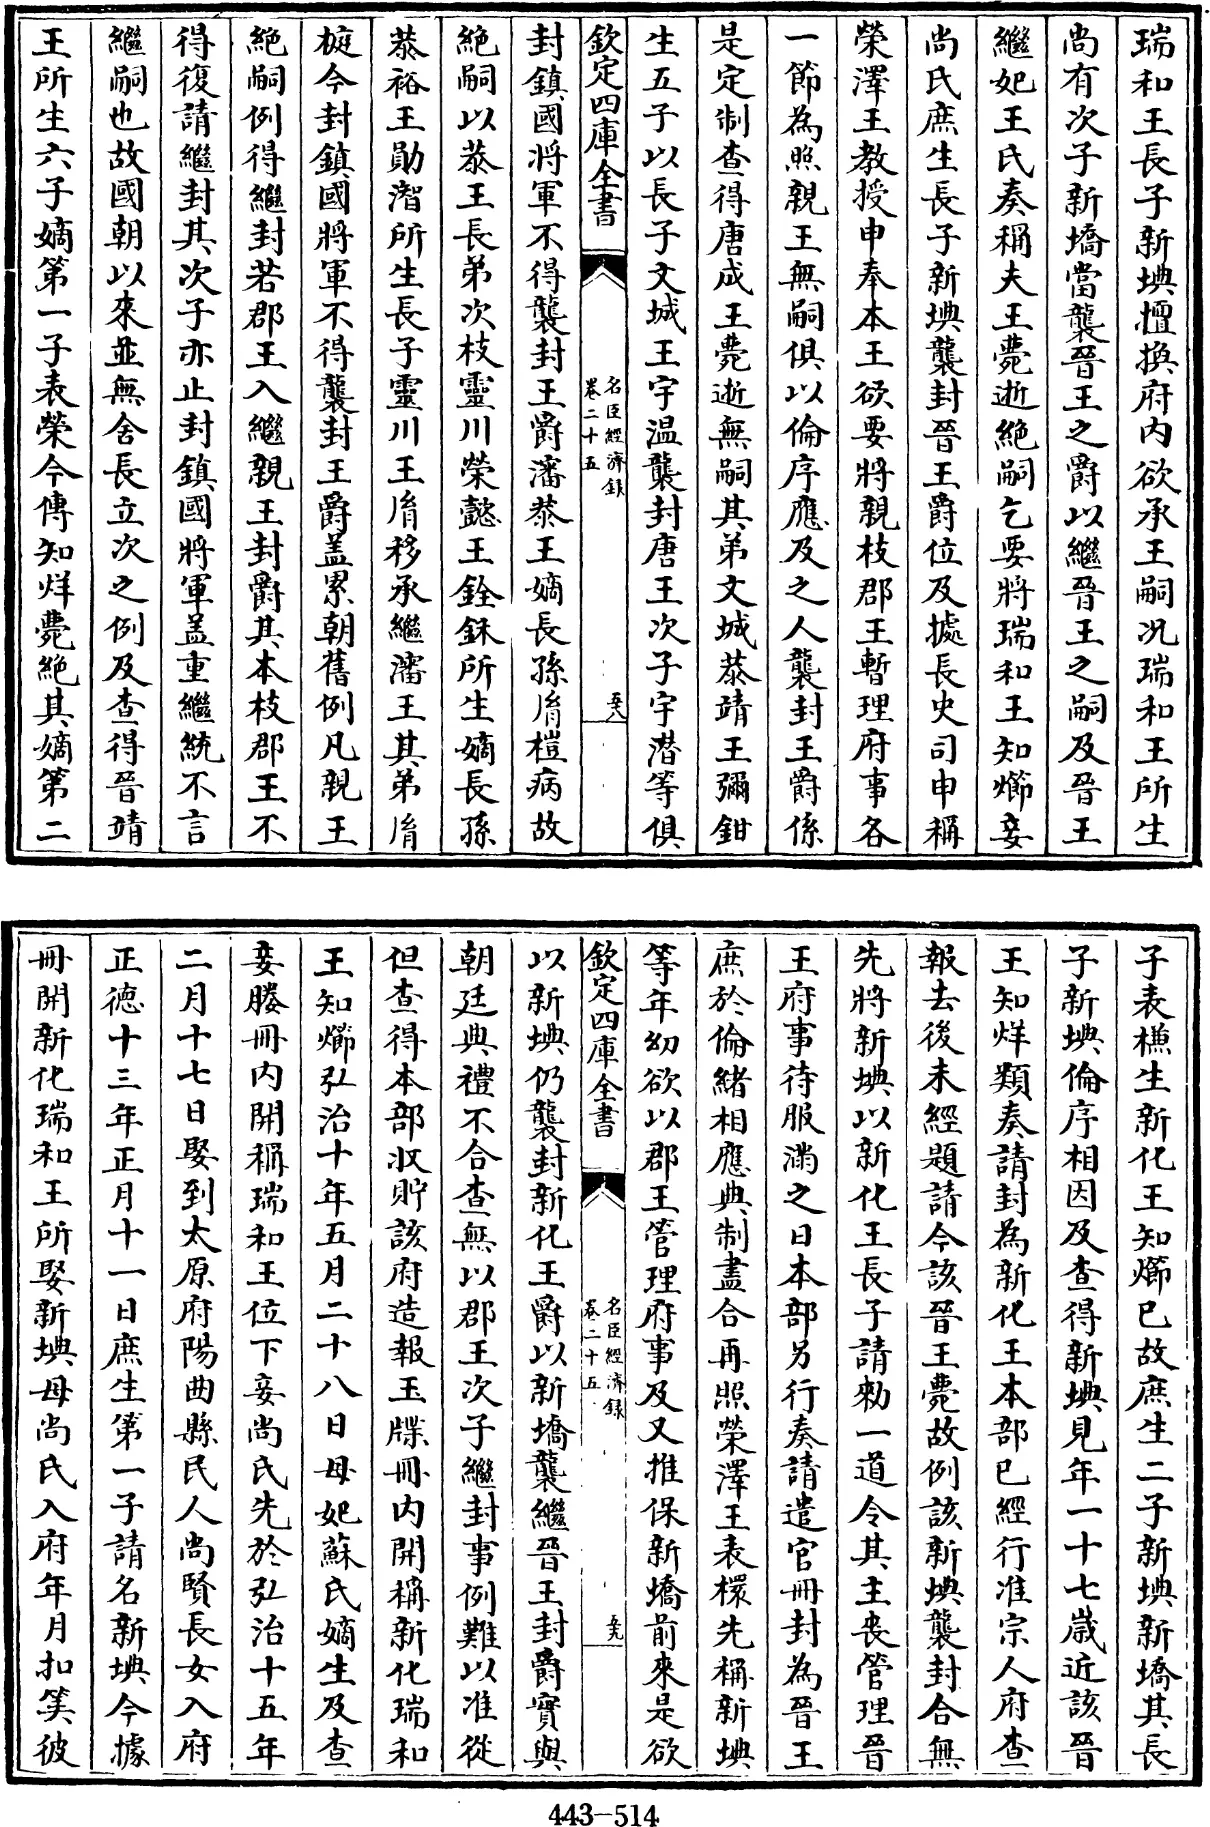 瑞和王長子新㙉擅換府内欲承王嗣况瑞和王所生
尚有次子新墧當襲晉王之爵以繼晉王之嗣及晉王
繼妃王氏奏稱夫王薨逝絶嗣乞要將瑞和王知㸅妾
尚氏庶生長子新㙉襲封晉王爵位及據長史司申稱
榮澤王教授申奉本王欲要將親枝郡王暫理府事各
一節為照親王無嗣俱以倫序應及之人襲封王爵係
是定制查得唐成王薨逝無嗣其弟文城恭靖王彌鉗
生五子以長子文城王宇温襲封唐王次子宇潜等俱
欽定四庫全書
名臣經濟録
卷二十五
五八
封鎮國將軍不得襲封王爵瀋恭王嫡長孫㣧榿病故
絶嗣以恭王長弟次枝靈川榮懿王銓鉌所生嫡長孫
恭裕王勛潪所生長子靈川王㣧栘承繼瀋王其弟㣧
榳今封鎮國將軍不得襲封王爵盖累朝舊例凡親王
絶嗣例得繼封若郡王入繼親王封爵其本枝郡王不
得復請繼封其次子亦止封鎮國將軍盖重繼統不言
繼嗣也故國朝以來並無舍長立次之例及查得晉靖
王所生六子嫡第一子表榮今傳知烊薨絶其嫡第二
子表槏生新化王知㸅已故庶生二子新㙉新墧其長
子新㙉倫序相因及查得新㙉見年一十七歲近該晉
王知烊類奏請封為新化王本部已經行准宗人府查
報去後未經題請今該晉王薨故例該新㙉襲封合無
先將新㙉以新化王長子請勅一道令其主喪管理晉
王府事待服滿之日本部另行奏請遣官冊封為晉王
庶於倫緒相應典制盡合再照榮澤王表檈先稱新㙉
等年幼欲以郡王管理府事及又推保新墧前來是欲
欽定四庫全書
名臣經濟録
卷二十五
五九
以新㙉仍襲封新化王爵以新墧襲繼晉王封爵實與
朝廷典禮不合查無以郡王次子繼封事例難以准從
但查得本部收貯該府造報玉牒冊内開稱新化瑞和
王知㸅弘治十年五月二十八日母妃蘇氏嫡生及查
妾媵冊内開稱瑞和王位下妾尚氏先於弘治十五年
二月十七日娶到太原府陽曲縣民人尚賢長女入府
正德十三年正月十一日庶生第一子請名新㙉今據
冊開新化瑞和王所娶新㙉母尚氏入府年月扣筭彼
443-514